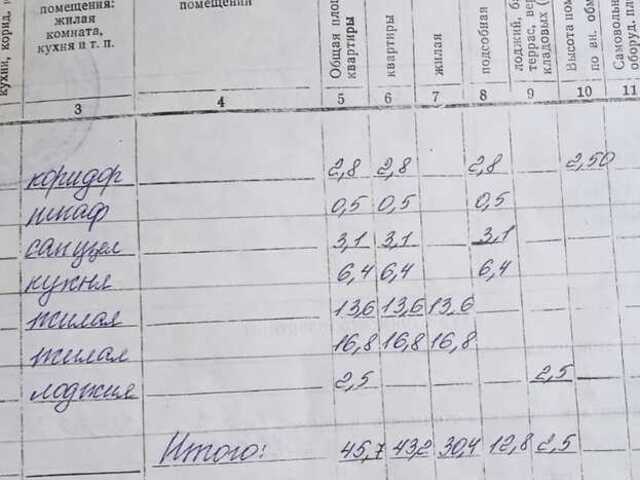 помещения:
жилая
комната,
кухня и т. п.
помещения
Общая
квартиры
квартиры
жилая
подсобная
террас,
кладовых
Высота
по вн.
оборуд.
3 4 5 6 7 8 9 10 11
коридор 2,8 2,8 2,8 2,50
шкаф 0,5 0,5 0,5
санузел 3,1 3,1 3,1
кухня 6,4 6,4 6,4
жилая 13,6 13,6 13,6
жилая 16,8 16,8 16,8
лоджия 2,5 2,5
Итого: 45,7 43,2 30,4 12,8 2,5